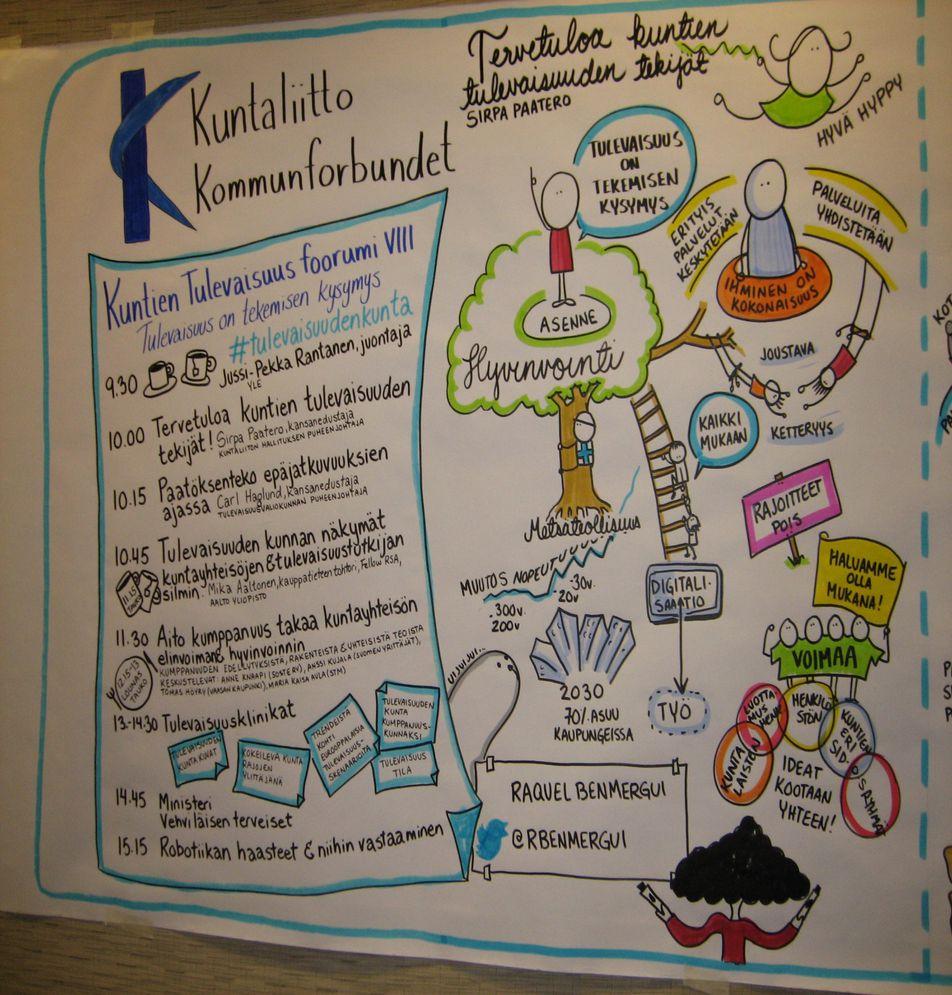 Kuntaliitto
Kommunforbundet
Kuntien Tulevaisuus foorumi VIII
Tulevaisuus on tekemisen kysymys
#tulevaisuudenkunta
9.30 Jussi-Pekka Rantanen, juontaja
YLE
10.00 Tervetuloa kuntien tulevaisuuden
tekijät! Sirpa Paatero, kansanedustaja
KUNTALIITON HALLITUKSEN PUHEENJOHTAJA
10.15 Päätöksenteko epäjatkuvuuksien
ajassa Carl Haglund, kansanedustaja
TULEVAISUUSVALIOKUNNAN PUHEENJOHTAJA
10.45 Tulevaisuuden kunnan näkymät
kuntayhteisöjen & tulevaisuustutkijan
silmin. Mika Aaltonen, kauppatieteen tohtori, Fellow RSA,
AALTO YLIOPISTO
11.15
TAUKO
11.30 Aito kumppanuus takaa kuntayhteisön
elinvoiman & hyvinvoinnin
KUMPPANUUDEN EDELLYTYKSISTÄ, RAKENTEISTA & YHTEISISTÄ TEOISTA
KESKUSTELEVAT: ANNE KNAAPI (SOSTE RY), ANSSI KUJALA (SUOMEN YRITTÄJÄT),
TOMAS HÖYRY (VAASAN KAUPUNKI), MARIA KAISA AULA (STM)
12.15-13
LOUNAS
TAUKO
13-14.30 Tulevaisuusklinikat
TULEVAISUUDEN
KUNTA KINAT
KOKEILEVA KUNTA
RAJOJEN
YLITTÄJÄNÄ
TRENDEISTÄ
KOHTI
EUROOPPALAISIA
TULEVAISUUS-
SKENAARIOITA
TULEVAISUUDEN
KUNTA
KUMPPANUUS-
KUNNAKSI
TULEVAISUUS
TILA
14.45 Ministeri
Vehviläisen terveiset
15.15 Robotiikan haasteet & niihin vastaaminen
Tervetuloa kuntien
tulevaisuuden tekijät
SIRPA PAATERO
HYVÄ HYPPY
TULEVAISUUS
ON
TEKEMISEN
KYSYMYS
ASENNE
Hyvinvointi
ERITYIS
PALVELUT
KESKYTETÄÄN
PALVELUITA
YHDISTETÄÄN
IHMINEN ON
KOKONAISUUS
JOUSTAVA
KETTERYYS
KAIKKI
MUKAAN
Metsäteollisuus
MUUTOS NOPEUTUUUUU
-300v.
200v
-30v.
20v
DIGITALI-
SAATIO
TYÖ
2030
70% ASUU
KAUPUNGEISSA
UIJUIJUI...
RAJOITTEET
POIS
HALUAMME
OLLA
MUKANA!
VOIMAA
LUOTTA
MUS
HENK.
HENKILÖ
STÖN
KUNTA
LAISTEN
KUNTIEN
ERI
SID-OSRYHMÄT
IDEAT
KOOTAAN
YHTEEN!
RAQUEL BENMERGUI
@RBENMERGUI